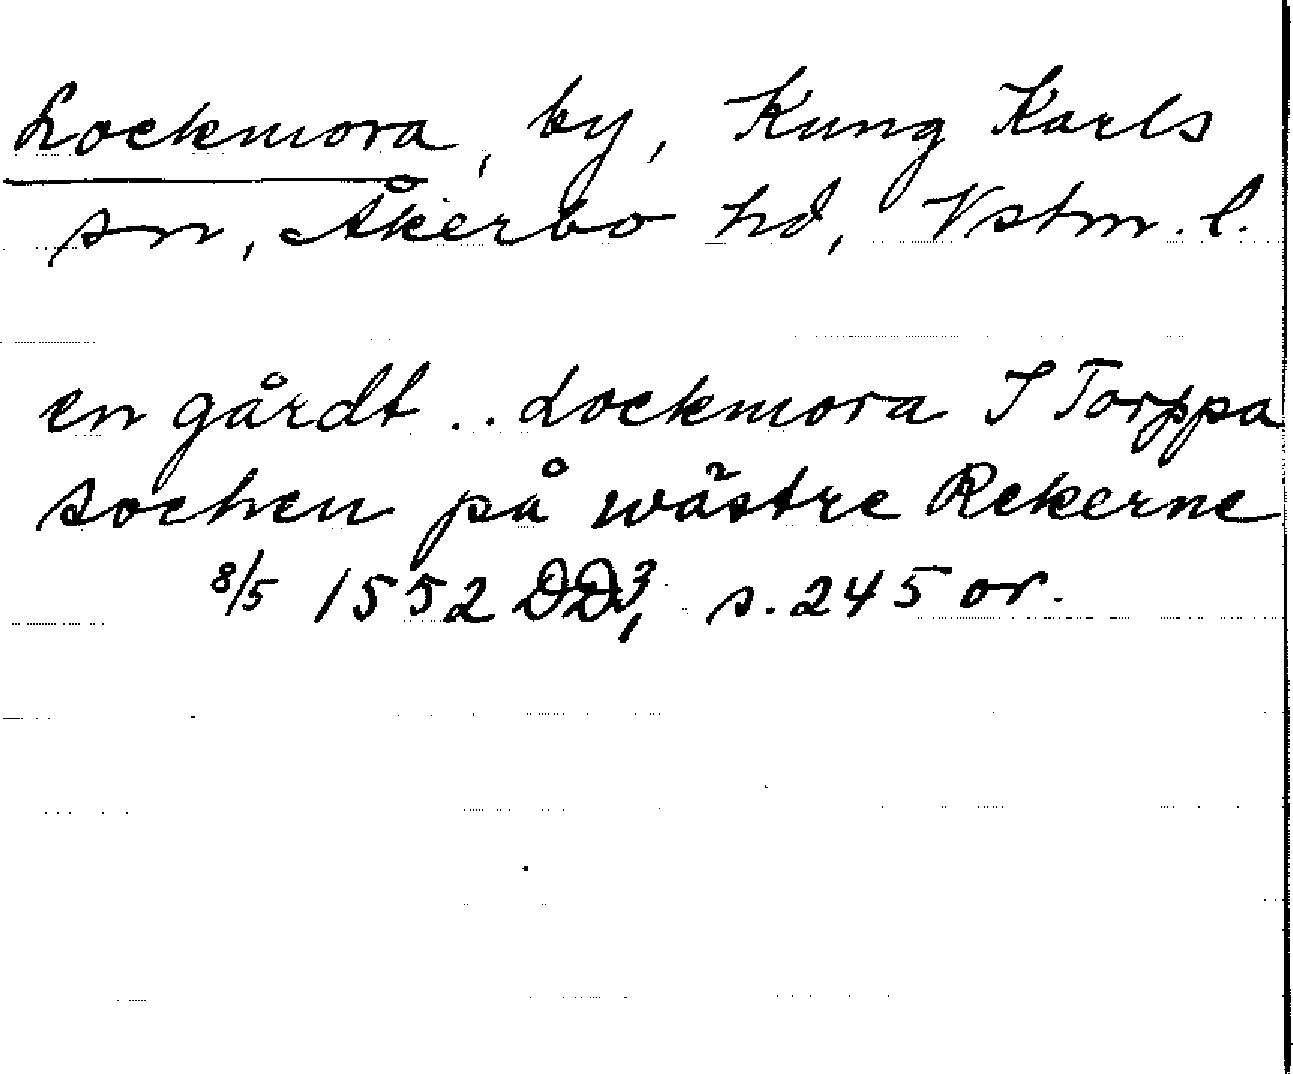 Lockmora, by, Kung Karls
sn, Åkerbo hd, Vstm. l.
en gårdt .. Lockmora I Torppa
sochen på wästre Rekerne
8/5 1552 DD3, s. 245 or.